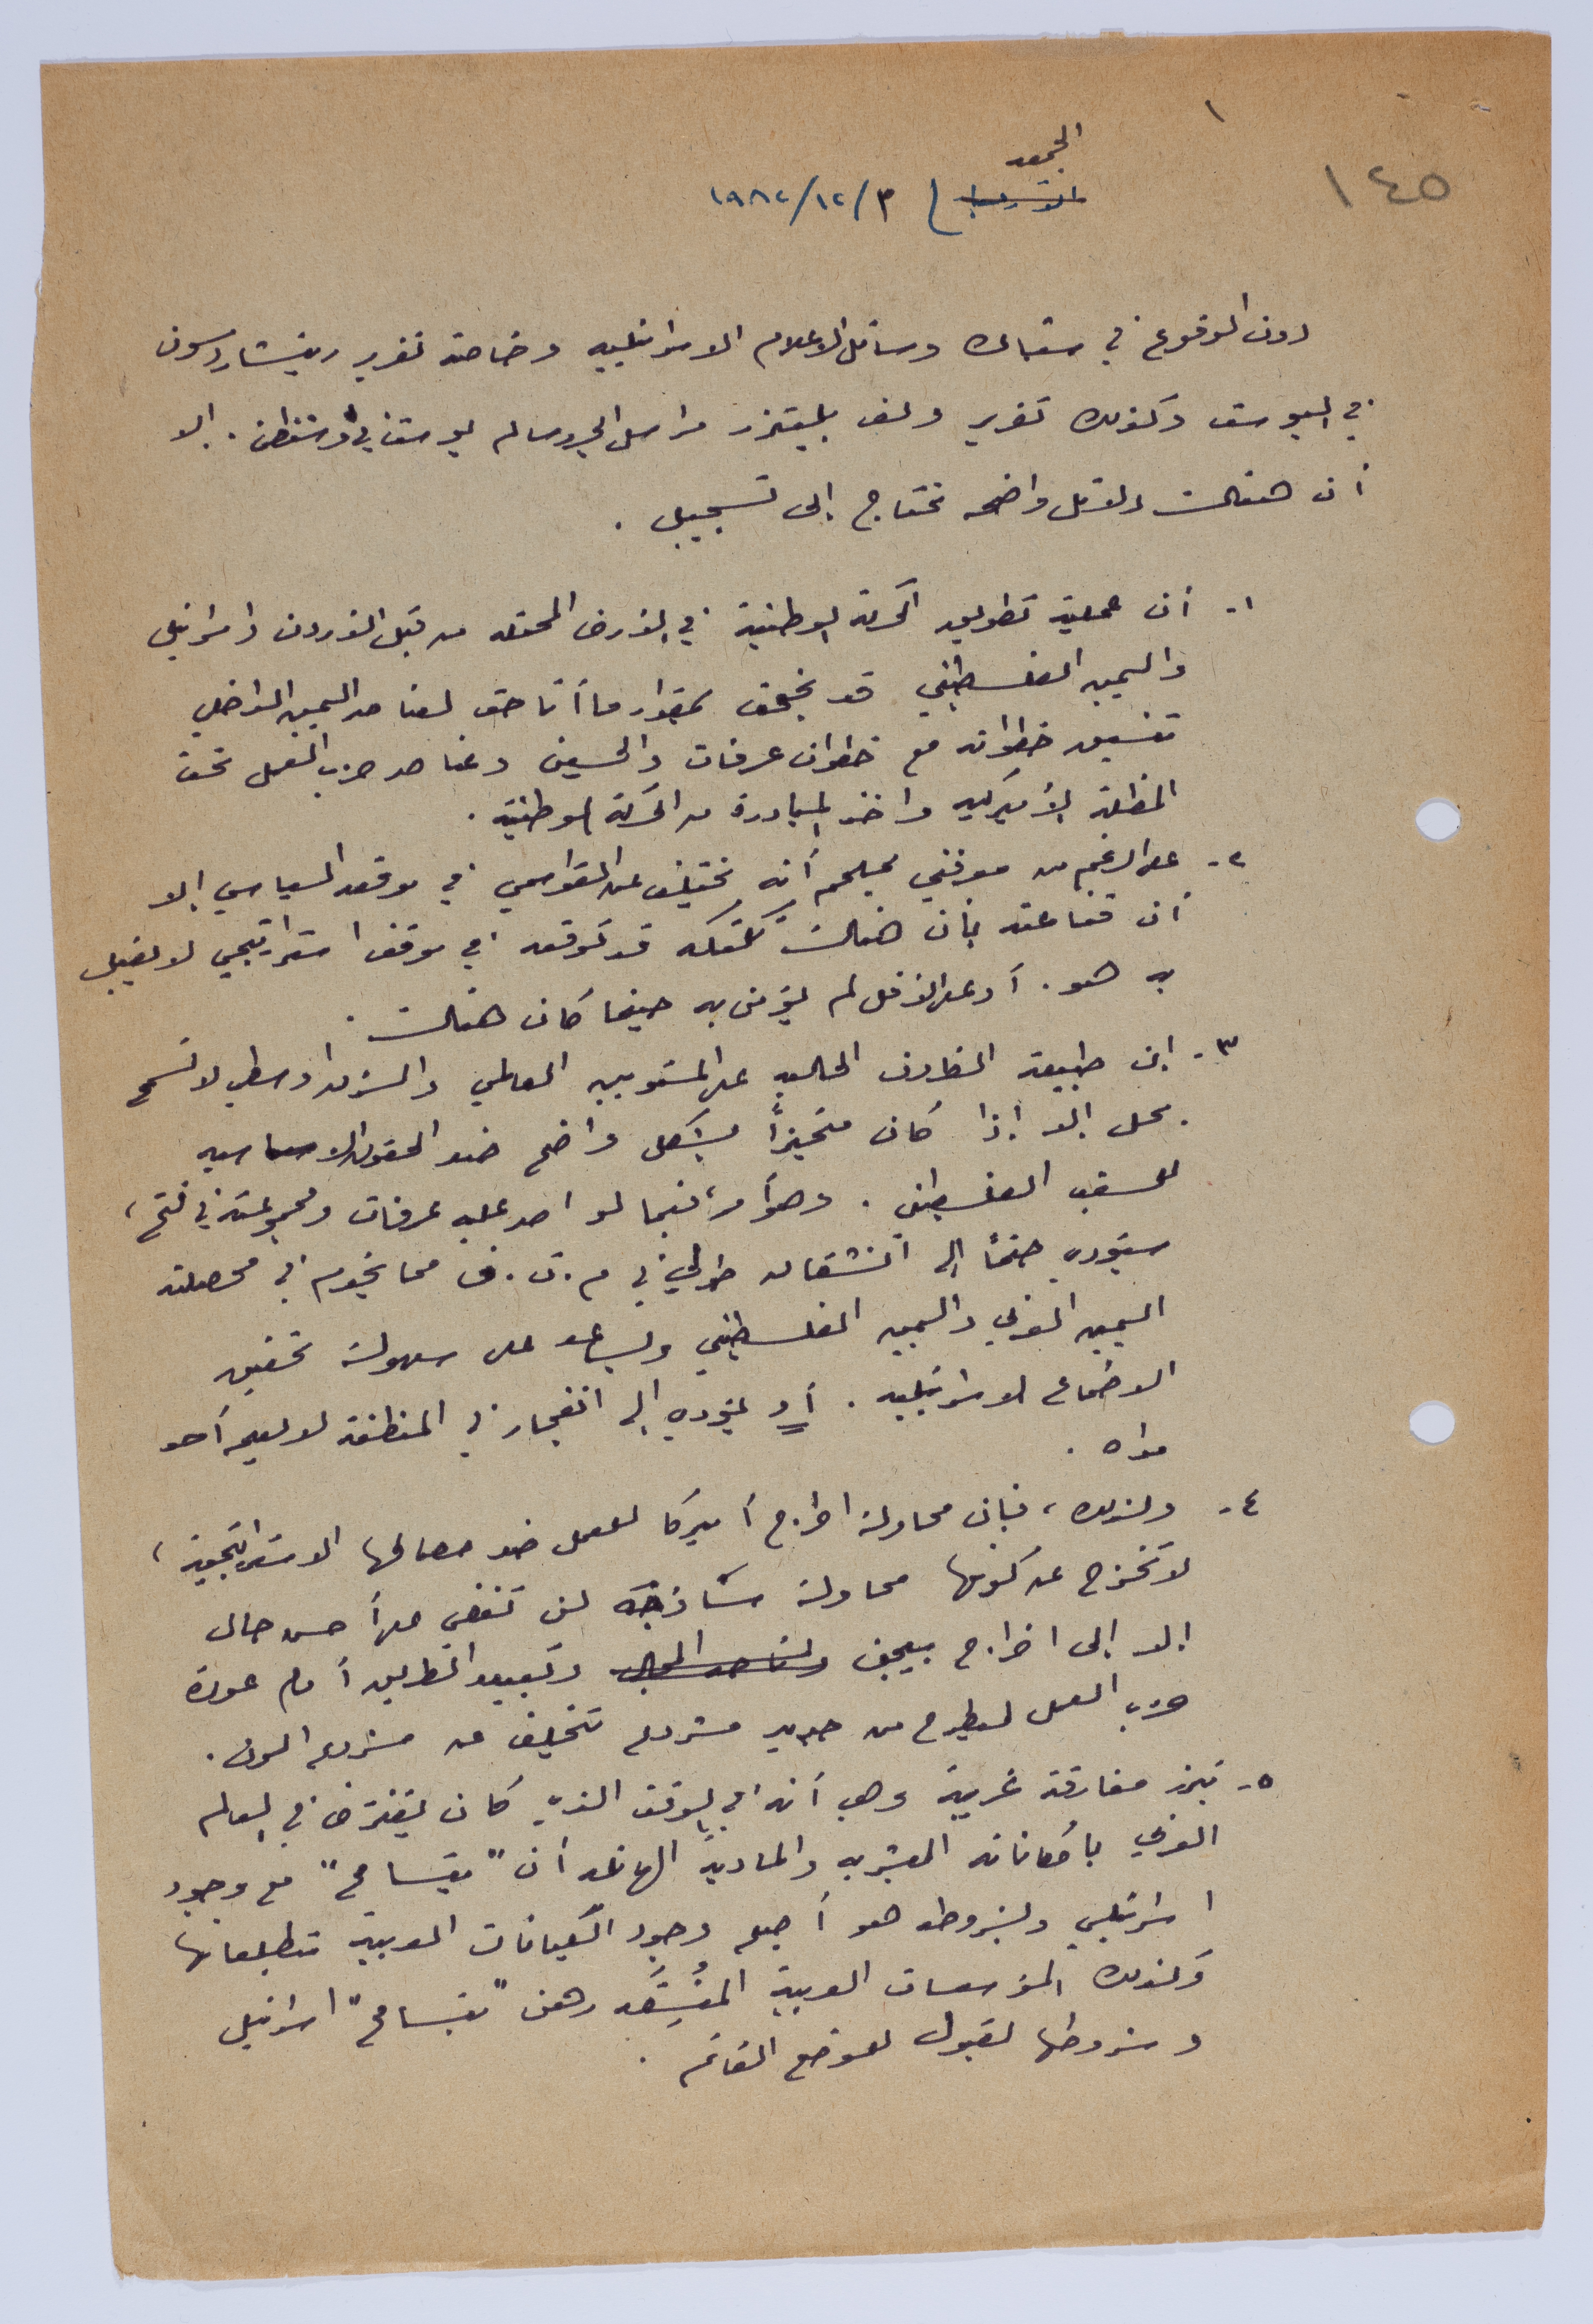 ١
١٤٥
الجمعه
٣/١٢/١٩٨٢
دون الوقوع في شباك وسائل الاعلام الاسرائيليه وخاصة تقرير ريتشاردسون
في البوست وكذلك تقرير ولف بليتزر مراسل الجروسالم بوست في وشنطن. إلا
أن هنالك دلائل واضحه تحتاج إلى تسجيل .
١- أن عملية تطويق الحركة الوطنية في الأرض المحتله من قبل الأردن واسرائيل
واليمين الفلسطيني قد نجحت بمقدار ما أتاحت لعناصر اليمين الداخلي
تنسيق خطواته مع خطوات عرفات والحسين وعناصر حزب العمل تحت
المظلة الأميركيه واخذ المبادرة من الحركة الوطنية .
٢- على الرغم من معرفتي بملحم أنه يختلف عن القواسمي في موقفه السياسي إلا
أن قناعته بأن هنالك تكتكه قد توقعه في موقف استراتيجي لا يقبل
به هو. أو على الأقل لم يؤمن به حينما كان هنالك .
٣- إن طبيعة الظروف الحاليه على المستويين العالمي والشرق اوسطي لا تسمح
بحل إلا إذا كان متحيزاً بشكل واضح ضد الحقوق الاساسيه
للشعب الفلسطيني . وهو أمر، فيما لو اصر عليه عرفات ومجموعته في فتح،
سيؤدي حتماً إلى انشقاق طولي في م.ت.ف مما يخدم في محصلته
اليمين العربي واليمين الفلسطيني ويساعد على سهولة تحقيق
الاطماع الاسرائيليه . أو يؤدي إلى انفجار في المنطقة لا يعلم أحد
مداه .
٤- ولذلك، فإن محاولة اخراج أميركا للعمل ضد مصالحها الاستراتيجية،
لا تخرج عن كونها محاولة ساذجه لن تفضي على أحسن حال
إلا إلى اخراج بيجن وتعبيد الطريق أمام عودة
حزب العمل ليطرح من جديد مشروع تختلف عن مشروع الون .
٥- تبرز مفارقة غريبة وهي أنه في الوقت الذي كان يفترض في العالم
العربي بأمكاناته البشريه والمادية الهائله أن "يتسامح" مع وجود
اسرائيلي وبشروطه هو أصبح وجود الكيانات العربية بتطلعاتها
وكذلك المؤسسات العربية رهن "بتسامح" اسرائيل
وشروطها لقبول الوضع القائم .